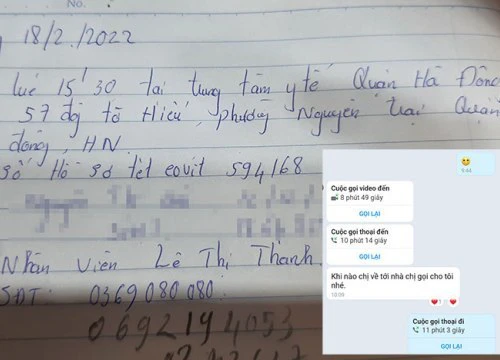 No.
18/2./2022
lúc 15'30 tại trung tâm y tế Quận Hà Đông
57 đg tô Hiệu, phường Nguyễn Trại Quận
đông, HN.
số Hồ sơ tét covit 594168
Nhân viên Lê Thị Thanh.
SĐT: 0369080080.
0692194053
9:44
Cuộc gọi video đến
8 phút 49 giây
GỌI LẠI
Cuộc gọi thoại đến
10 phút 14 giây
GỌI LẠI
Khi nào chị về tới nhà chị gọi cho tôi
nhé.
10:09
Cuộc gọi thoại đi
11 phút 3 giây
GỌI LẠI